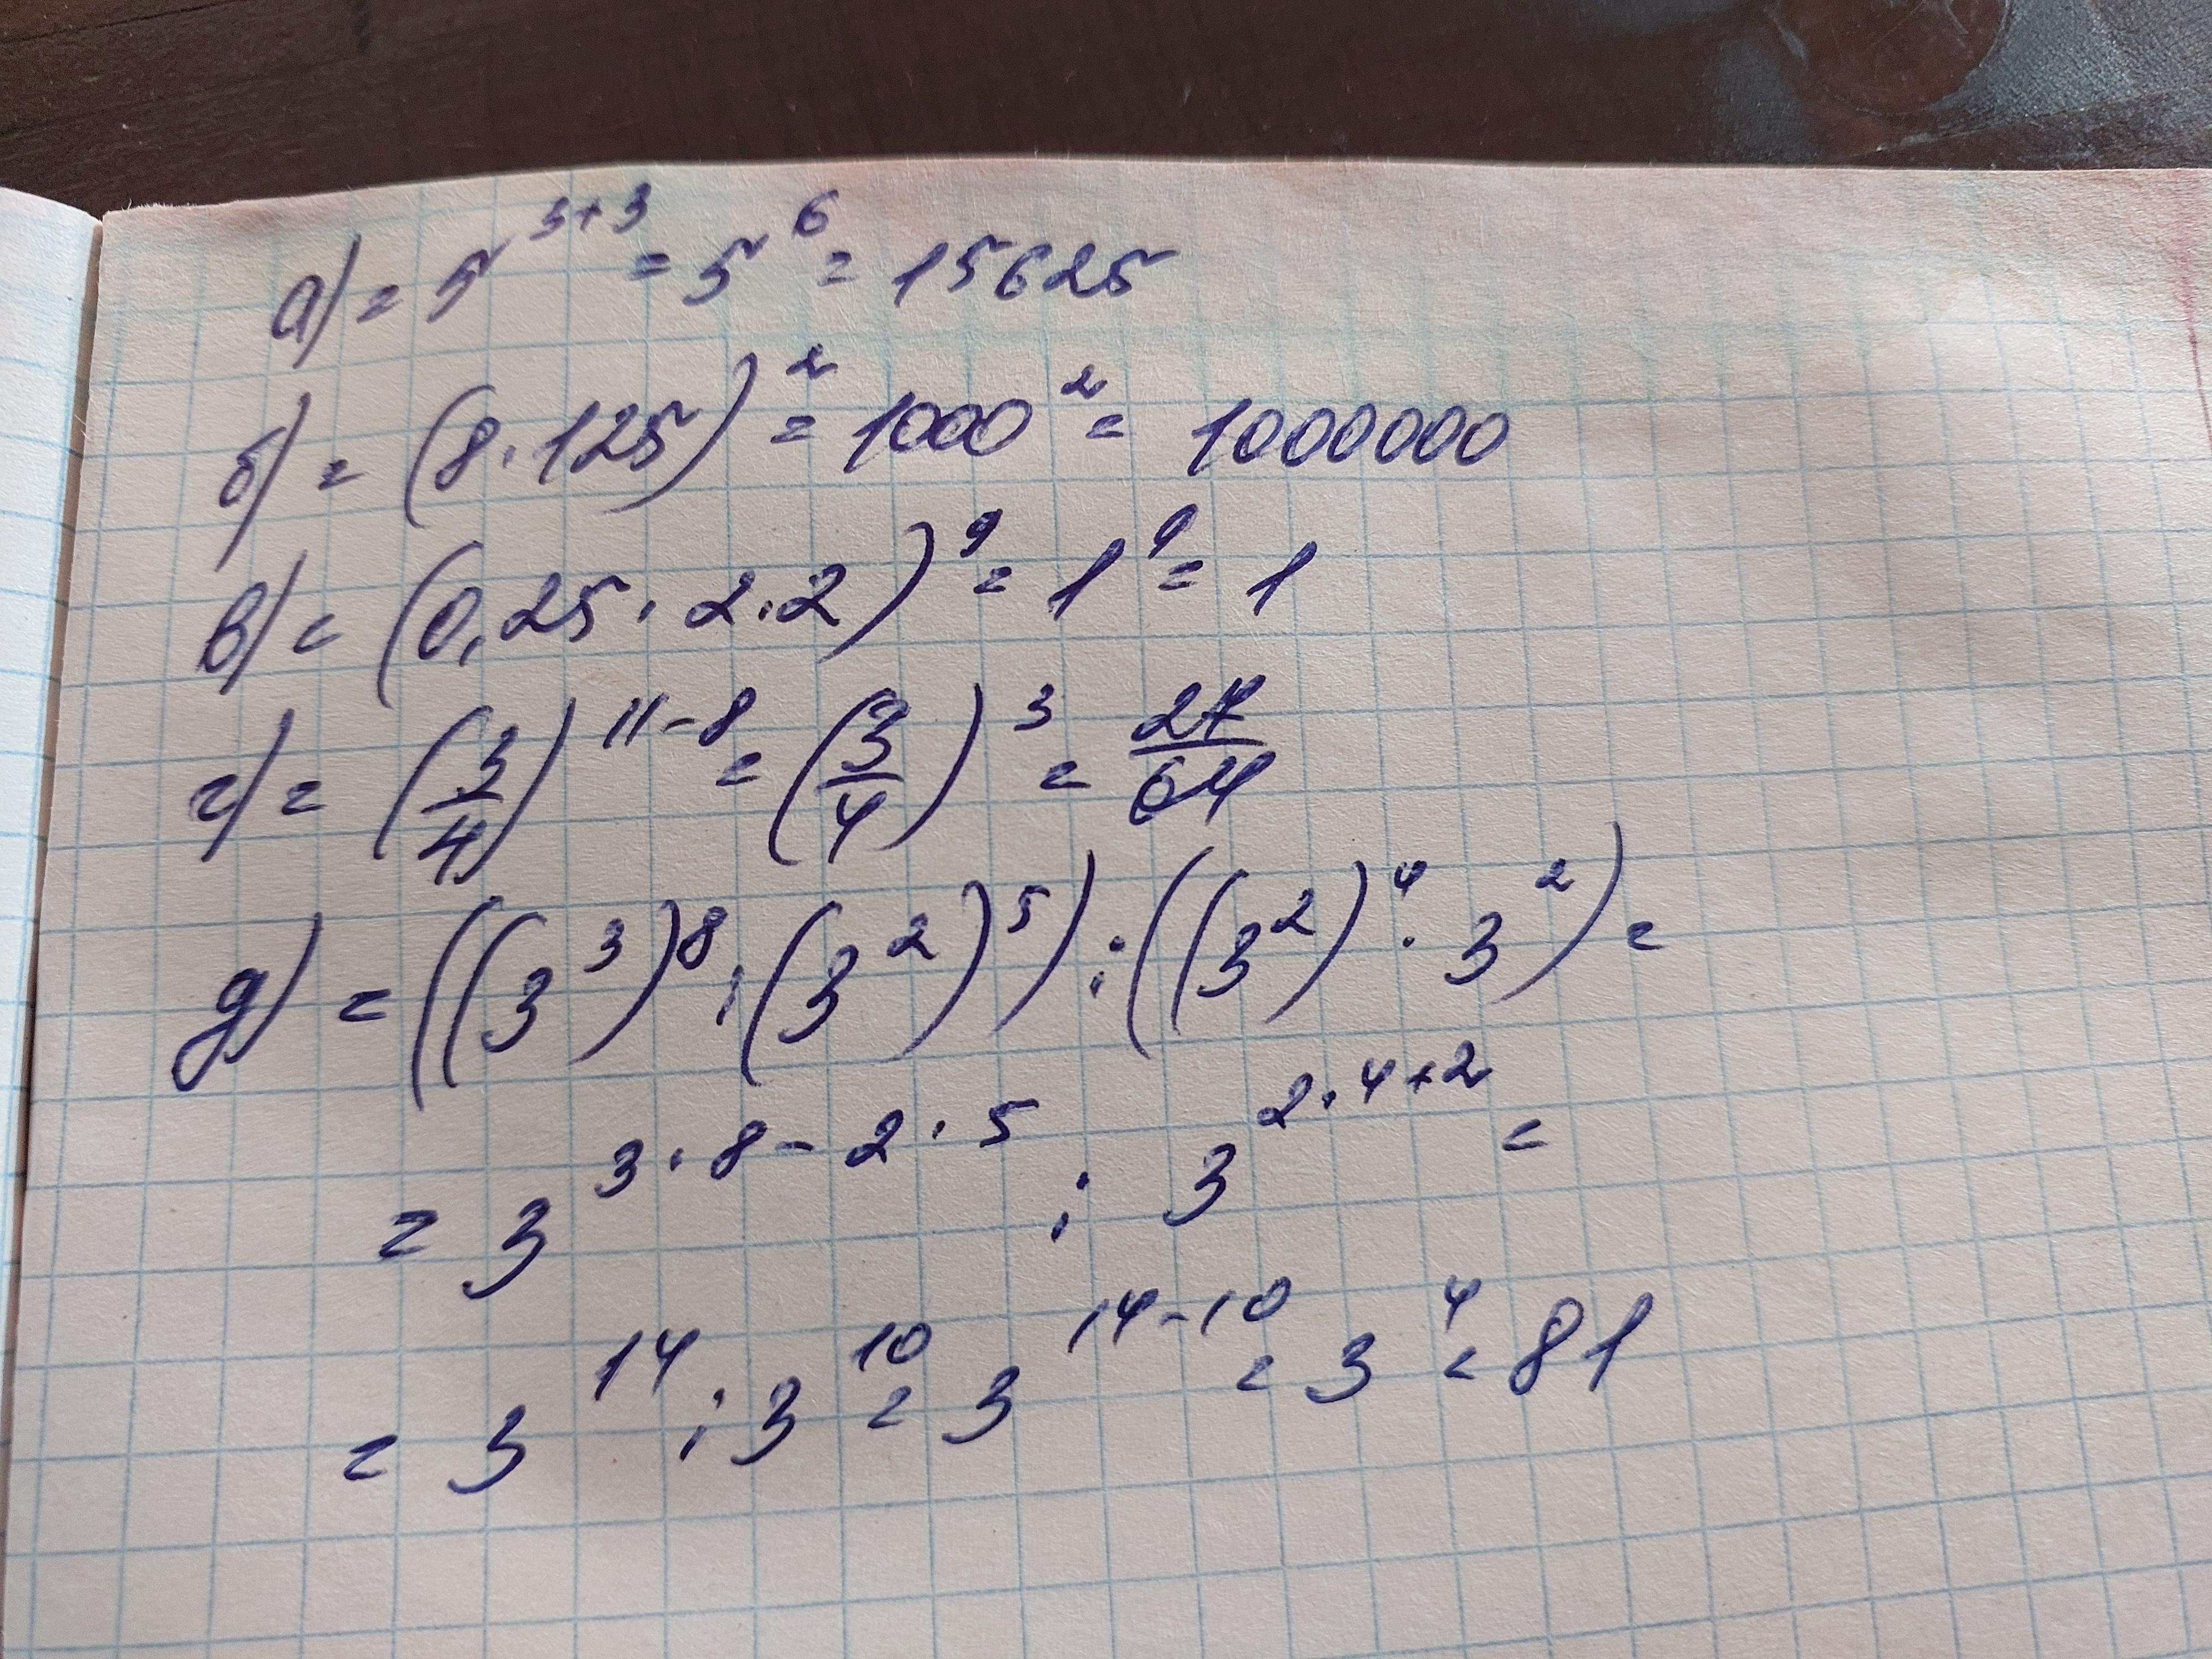 а) = 5^{3+3} = 5^6 = 15625
б) = (8·125)^2 = 1000^2 = 1000000
в) = (0,25·2·2)^9 = 1^9 = 1
г) = (3/4)^{11-8} = (3/4)^3 = 27/64
д) = ((3^3)^8 : (3^2)^5) : ((3^2)^4 · 3^2) =
= 3^{3·8-2·5} : 3^{2·4+2} =
= 3^{14} : 3^{10} = 3^{14-10} = 3^4 = 81